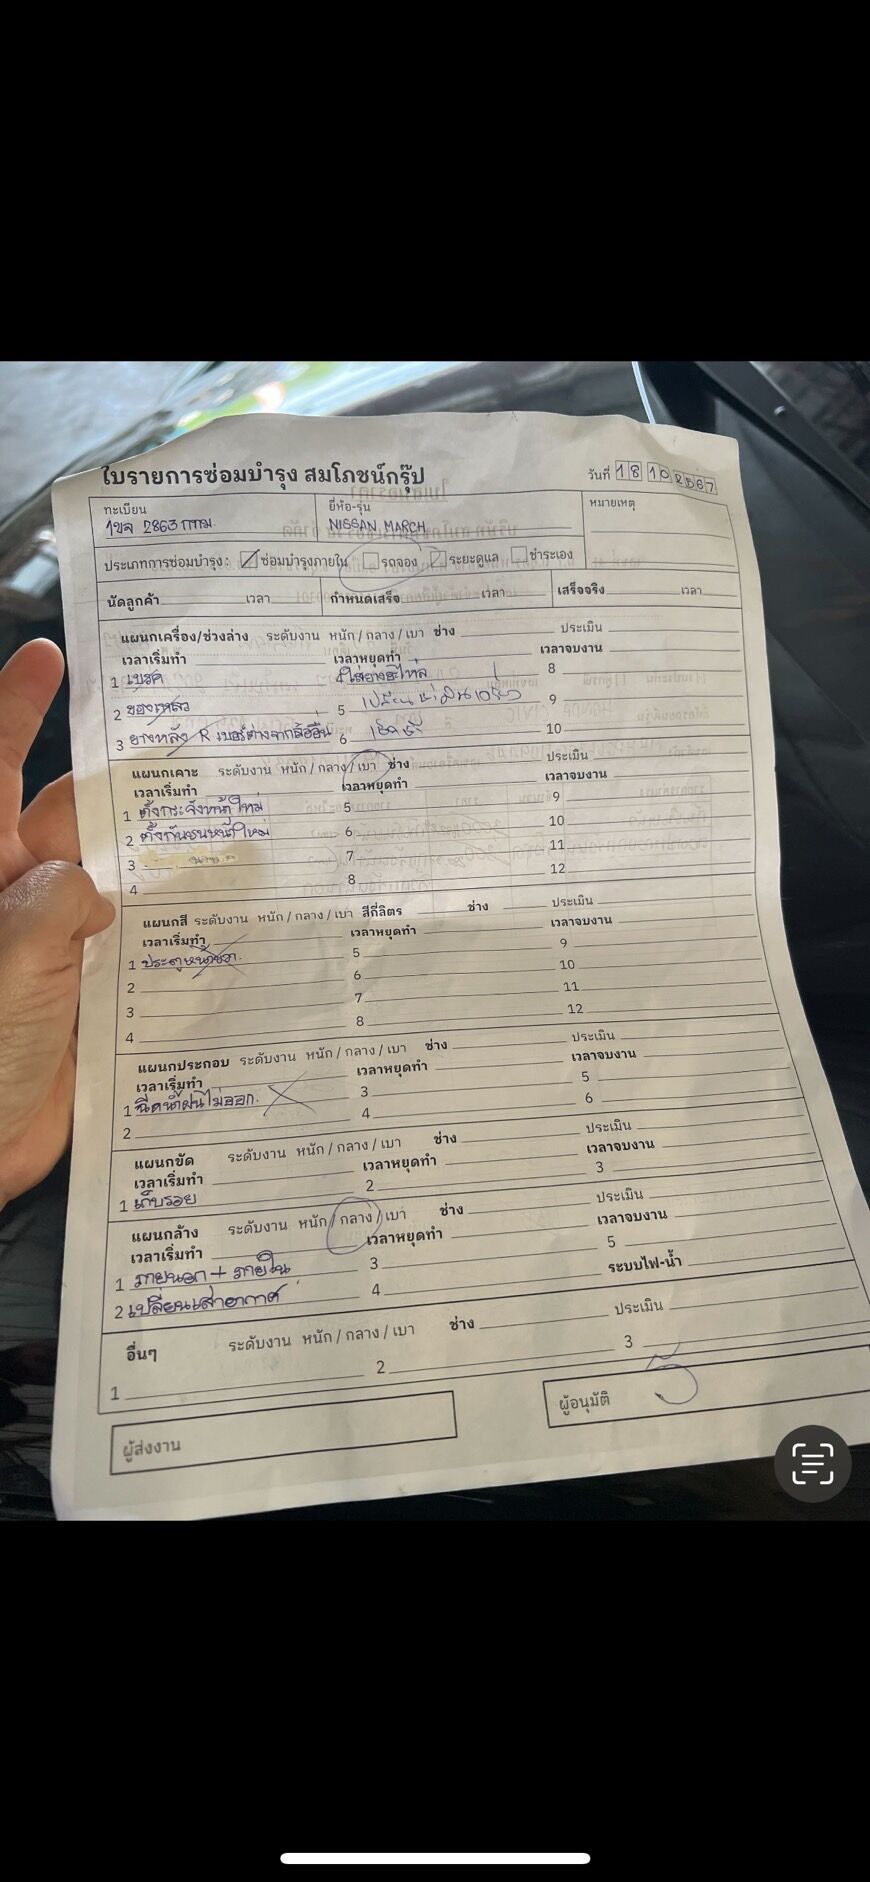 ใบรายการซ่อมบำรุง สมโภชน์กรุ๊ป
วันที่ 18 10 2567
ทะเบียน ยี่ห้อ-รุ่น หมายเหตุ
1ขจ 2863 กทม NISSAN MARCH
ประเภทการซ่อมบำรุง: ซ่อมบำรุงภายใน รถจอง ระยะดูแล ชำระเอง
นัดลูกค้า เวลา กำหนดเสร็จ เวลา เสร็จจริง เวลา
แผนกเครื่อง/ช่วงล่าง ระดับงาน หนัก / กลาง / เบา ช่าง ประเมิน
เวลาเริ่มทำ เวลาหยุดทำ เวลาจบงาน
1 เบรค 4 ใส่ยางอะไหล่ 8
2 ของเหลว 5 เปลี่ยน 9
3 ยางหลัง R เบอร์ต่างจากล้ออื่น 6 10
แผนกเคาะ ระดับงาน หนัก / กลาง / เบา ช่าง ประเมิน
เวลาเริ่มทำ เวลาหยุดทำ เวลาจบงาน
1 ตั้งกระจังหน้าใหม่ 5 9
2 ตั้งกันชนหน้าใหม่ 6 10
3 7 11
4 8 12
แผนกสี ระดับงาน หนัก / กลาง / เบา สีกี่ลิตร ช่าง ประเมิน
เวลาเริ่มทำ เวลาหยุดทำ เวลาจบงาน
1 ประตูหน้าขวา 5 9
2 6 10
3 7 11
4 8 12
แผนกประกอบ ระดับงาน หนัก / กลาง / เบา ช่าง ประเมิน
เวลาเริ่มทำ เวลาหยุดทำ เวลาจบงาน
1 ฉีดน้ำฝนไม่ออก. 3 5
2 4 6
แผนกขัด ระดับงาน หนัก / กลาง / เบา ช่าง ประเมิน
เวลาเริ่มทำ เวลาหยุดทำ เวลาจบงาน
1 เก็บรอย 2 3
แผนกล้าง ระดับงาน หนัก / กลาง / เบา ช่าง ประเมิน
เวลาเริ่มทำ เวลาหยุดทำ เวลาจบงาน
1 ภายนอก + ภายใน 3 5
2 เปลี่ยนเสาอากาศ 4 ระบบไฟ-น้ำ
อื่นๆ ระดับงาน หนัก / กลาง / เบา ช่าง ประเมิน
1 2 3
ผู้ส่งงาน ผู้อนุมัติ